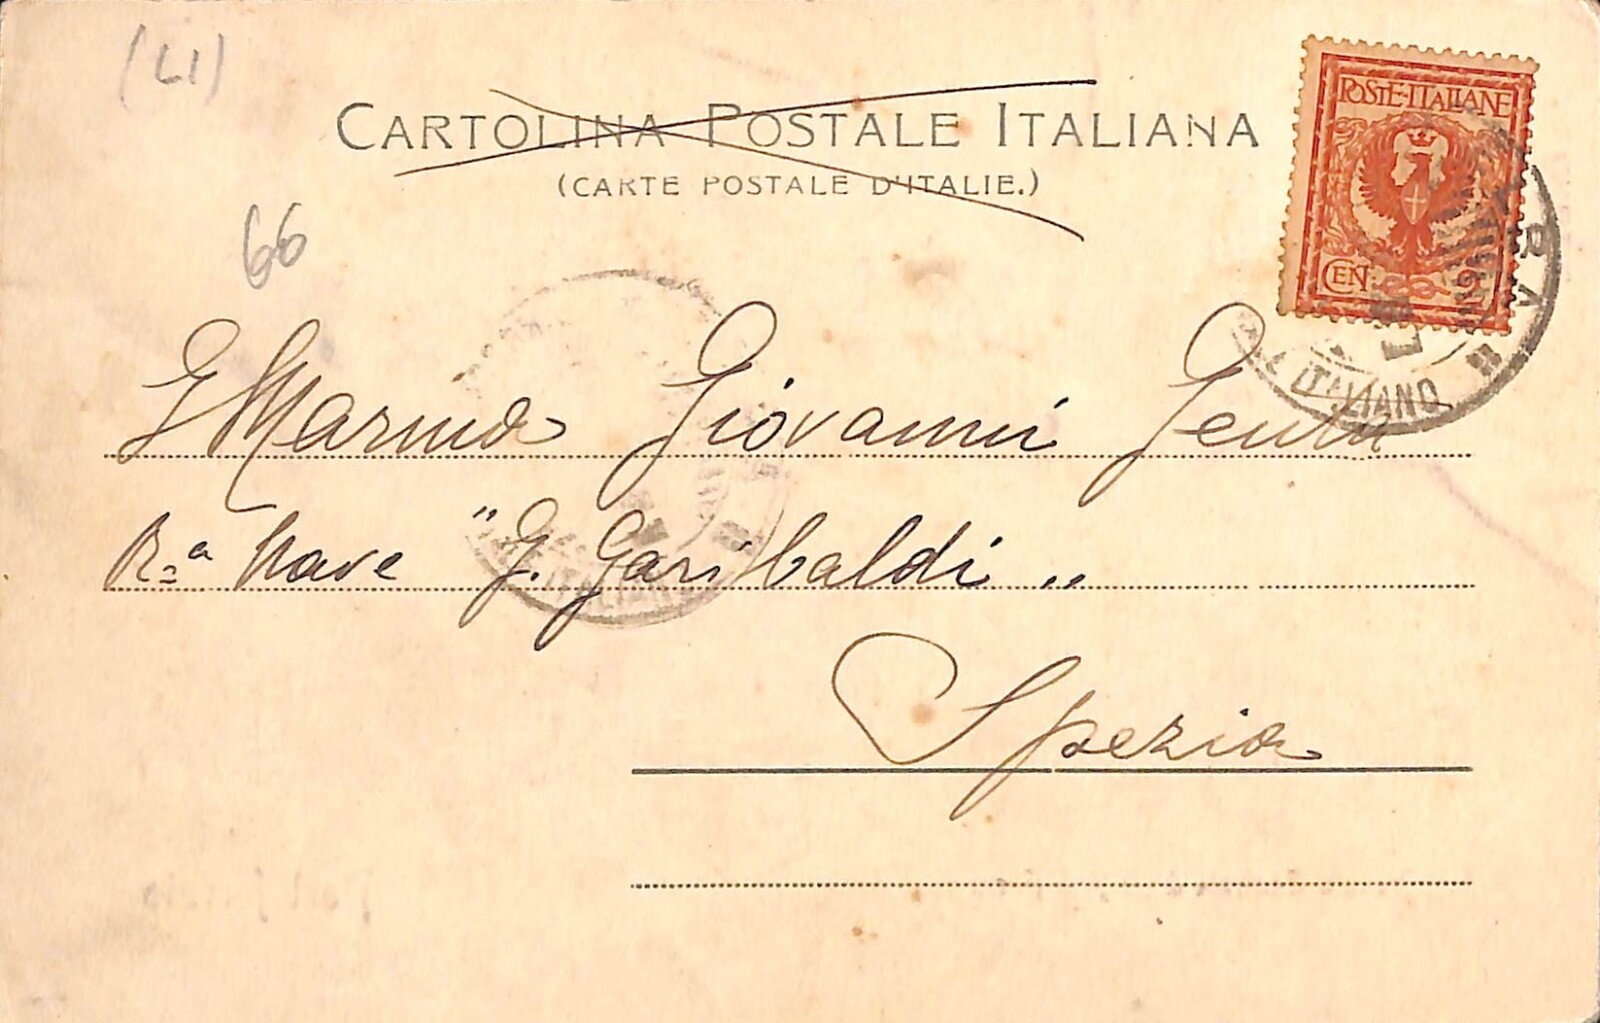 (LI)
CARTOLINA POSTALE ITALIANA
(CARTE POSTALE D'ITALIE.)
POSTE·ITALIANE
CEN 2
66
ITALIANO
Marina Giovanni
R.a Nave "G. Garibaldi"
ITALIANO
Spezia